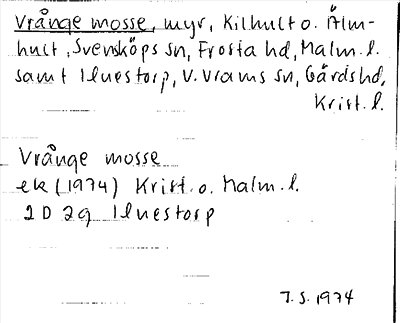 Vrånge mosse, myr, Kilhult o. Älm-
hult, Svensköps sn, Frosta hd, Malm. l.
samt Ilnestorp, V. Vrams sn, Gärds hd,
Krist. l.
Vrånge mosse
ek (1974) Krist. o. Malm. l.
2D 2g Ilnestorp
J.S. 1974